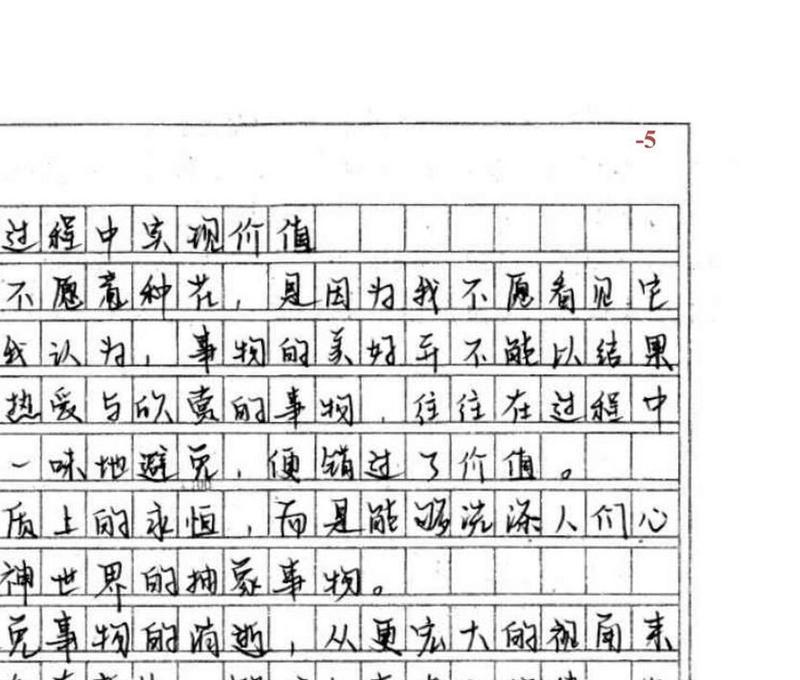 -5
过程中实现价值
不愿意种花，是因为我不愿看见它
我认为，事物的美好并不能以结果
热爱与欣赏的事物，往往在过程中
一味地避免，便错过了价值。
质上的永恒，而是能够洗涤人们心
神世界的抽象事物。
免事物的消逝，从更宏大的视角来